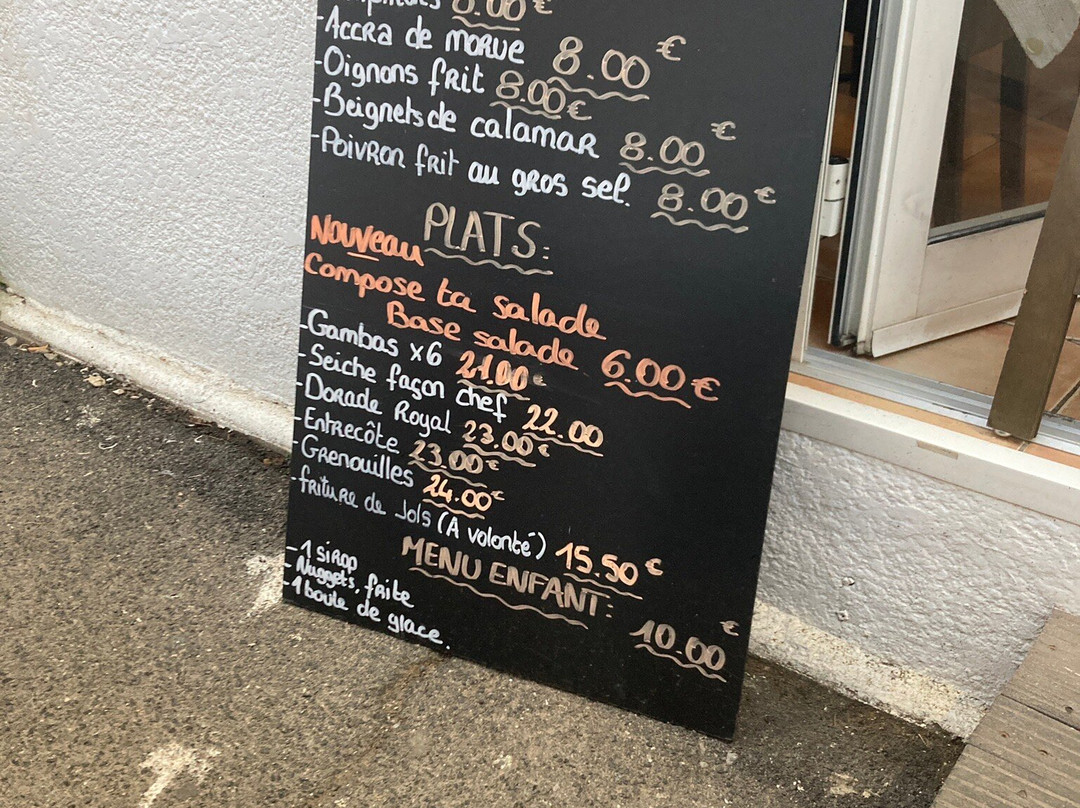 8.00€
-Accra de morue 8.00€
-Oignons frit 8.00€
-Beignets de calamar 8.00€
-Poivron frit au gros sel. 8.00€
PLATS:
Nouveau
Compose ta salade
Base salade 6.00€
-Gambas x6 21.00€
-Seiche façon chef 22.00
-Dorade Royal 23.00€
-Entrecôte 23.00€
-Grenouilles 24.00€
-friture de Jols (A volonté) 15.50€
MENU ENFANT:
-1 sirop
-Nuggets, frite
-1 boule de glace. 10.00€